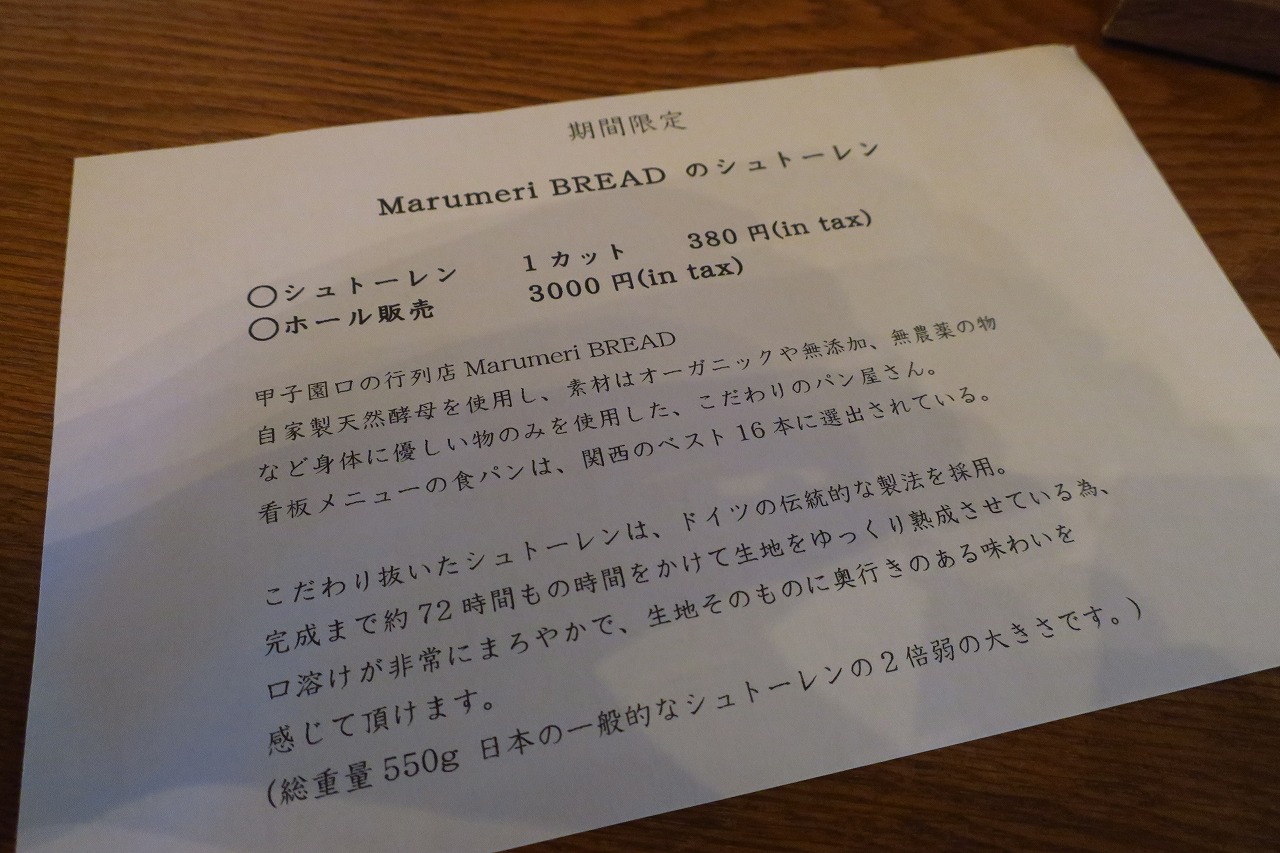 期間限定
Marumeri BREAD のシュトーレン
○シュトーレン 1カット 380円(in tax)
○ホール販売 3000円(in tax)
甲子園口の行列店 Marumeri BREAD
自家製天然酵母を使用し、素材はオーガニックや無添加、無農薬の物
など身体に優しい物のみを使用した、こだわりのパン屋さん。
看板メニューの食パンは、関西のベスト16本に選出されている。
こだわり抜いたシュトーレンは、ドイツの伝統的な製法を採用。
完成まで約72時間もの時間をかけて生地をゆっくり熟成させている為、
口溶けが非常にまろやかで、生地そのものに奥行きのある味わいを
感じて頂けます。
(総重量550g 日本の一般的なシュトーレンの2倍弱の大きさです。)